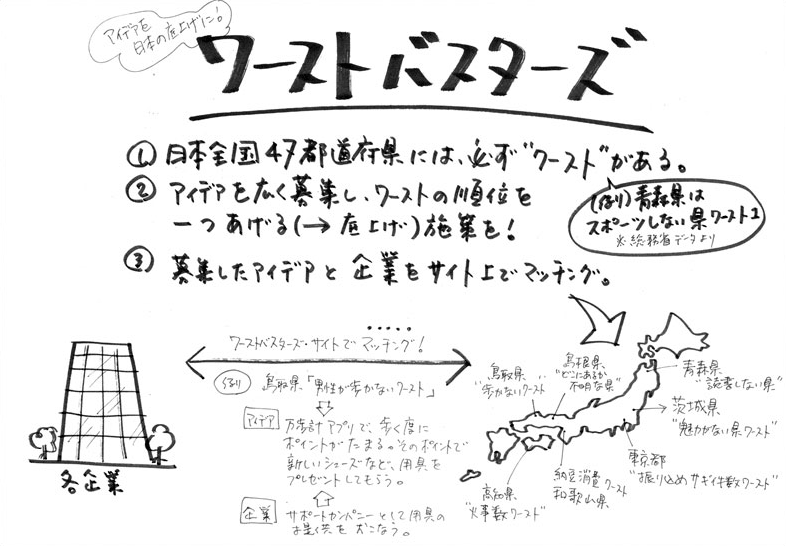 アイデアを
日本の底上げに!
ワーストバスターズ
① 日本全国47都道府県には、必ず"ワースト"がある。
② アイデアを広く募集し、ワーストの順位を
一つあげる(→ 底上げ)施策を!
(例)青森県は
スポーツしない県ワースト1
※総務省データより
③ 募集したアイデアと企業をサイト上でマッチング。
ワーストバスターズ・サイトでマッチング!
例 鳥取県「男性が歩かないワースト」
アイデア 万歩計アプリで、歩く度に
ポイントがたまる。そのポイントで
新しいシューズなど、用具を
プレゼントしてもらう。
企業 サポートカンパニーとして用具の
提供をおこなう。
各企業
鳥取県
"歩かないワースト"
島根県
"どこにあるか
不明な県"
青森県
"読書しない県"
茨城県
"魅力がない県ワースト"
東京都
"振り込めサギ件数ワースト"
納豆消費ワースト
和歌山県
高知県
"火事数ワースト"